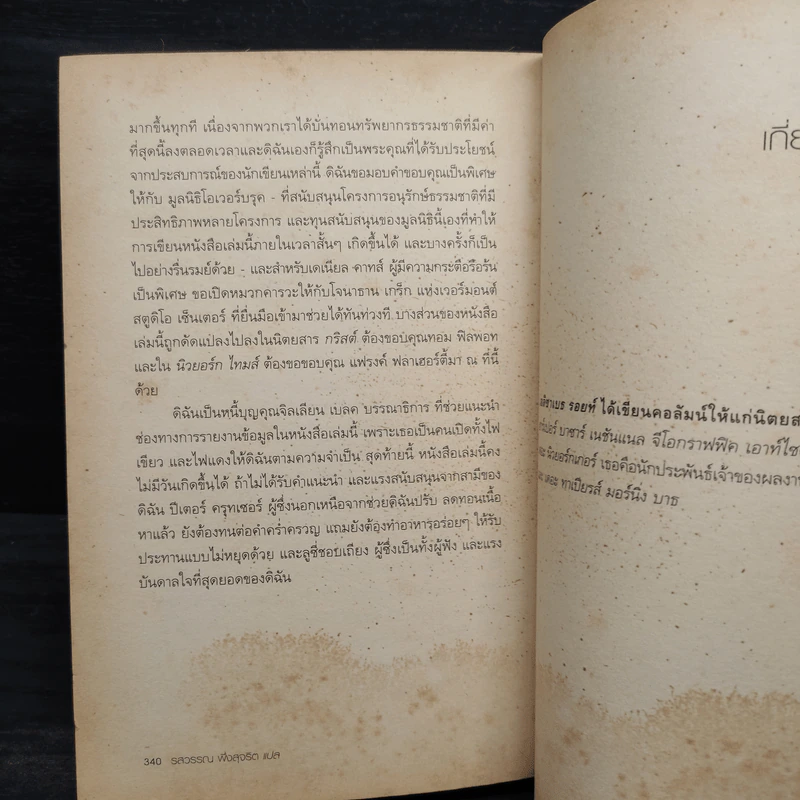 มากขึ้นทุกที เนื่องจากพวกเราได้บั่นทอนทรัพยากรธรรมชาติที่มีค่า
ที่สุดนี้ลงตลอดเวลาและดิฉันเองก็รู้สึกเป็นพระคุณที่ได้รับประโยชน์
จากประสบการณ์ของนักเขียนเหล่านี้ ดิฉันขอมอบคำขอบคุณเป็นพิเศษ
ให้กับ มูลนิธิโอเวอร์บรุค - ที่สนับสนุนโครงการอนุรักษ์ธรรมชาติที่มี
ประสิทธิภาพหลายโครงการ และทุนสนับสนุนของมูลนิธินี้เองที่ทำให้
การเขียนหนังสือเล่มนี้ภายในเวลาสั้นๆ เกิดขึ้นได้ และบางครั้งก็เป็น
ไปอย่างรื่นรมย์ด้วย - และสำหรับเดเนียล คาทส์ ผู้มีความกระตือรือร้น
เป็นพิเศษ ขอเปิดหมวกคารวะให้กับโจนาธาน เกร็ก แห่งเวอร์มอนต์
สตูดิโอ เซ็นเตอร์ ที่ยื่นมือเข้ามาช่วยได้ทันท่วงที บางส่วนของหนังสือ
เล่มนี้ถูกดัดแปลงไปลงในนิตยสาร กริสต์ ต้องขอบคุณทอม ฟิลพอท
และใน นิวยอร์ก ไทมส์ ต้องขอขอบคุณ แฟรงค์ ฟลาเฮอร์ตี้มา ณ ที่นี้
ด้วย
ดิฉันเป็นหนี้บุญคุณจิลเลียน เบลค บรรณาธิการ ที่ช่วยแนะนำ
ช่องทางการรายงานข้อมูลในหนังสือเล่มนี้ เพราะเธอเป็นคนเปิดทั้งไฟ
เขียว และไฟแดงให้ดิฉันตามความจำเป็น สุดท้ายนี้ หนังสือเล่มนี้คง
ไม่มีวันเกิดขึ้นได้ ถ้าไม่ได้รับคำแนะนำ และแรงสนับสนุนจากสามีของ
ดิฉัน ปีเตอร์ ครุทเซอร์ ผู้ซึ่งนอกเหนือจากช่วยดิฉันปรับ ลดทอนเนื้อ
หาแล้ว ยังต้องทนต่อคำคร่ำครวญ แถมยังต้องทำอาหารอร่อยๆ ให้รับ
ประทานแบบไม่หยุดด้วย และลูซี่ชอบเถียง ผู้ซึ่งเป็นทั้งผู้ฟัง และแรง
บันดาลใจที่สุดยอดของดิฉัน
340 รสวรรณ พึ่งสุจริต แปล
เกี่ย
รอยท์ ได้เขียนคอลัมน์ให้แก่นิตยส
บาซาร์ เนชันแนล จีโอกราฟฟิค เอาท์ไซ
นิวยอร์กเกอร์ เธอคือนักประพันธ์เจ้าของผลงา
เดอะ ทาเปียรส์ มอร์นิ่ง บาธ